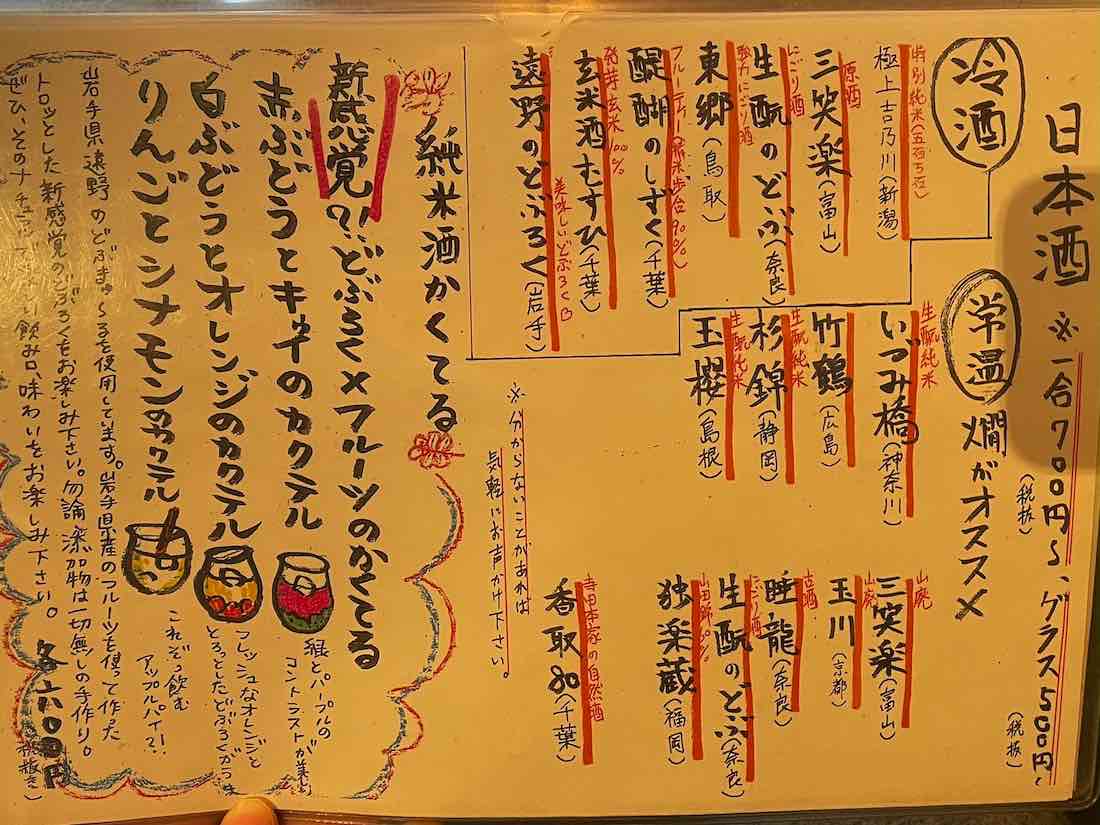 日本酒 ※一合700円〜、グラス500円〜
(税抜)
(税抜)
冷酒
特別純米(五百万石)
極上吉乃川(新潟)
原酒
三笑楽(富山)
にごり酒
生酛のどぶ(奈良)
強力にごり酒
東郷(鳥取)
フルーティー(精米歩合90%)
醍醐のしずく(千葉)
発芽玄米100%
玄米酒むすひ(千葉)
美味しいどぶろく
遠野のどぶろく(岩手)
常温 燗がオススメ
生酛純米
いづみ橋(神奈川)
竹鶴(広島)
生酛純米
杉錦(静岡)
生酛純米
玉櫻(島根)
山廃
三笑楽(富山)
山廃
玉川(京都)
古酒
睡龍(奈良)
にごり酒
生酛のどぶ(奈良)
山田錦
独楽蔵(福岡)
寺田本家の自然酒
香取80(千葉)
※分からないことがあれば
気軽にお声かけ下さい。
純米酒かくてる
新感覚?!どぶろく×フルーツのかくてる
赤ぶどうとキウイのカクテル
緑とパープルの
コントラストが美
白ぶどうとオレンジのカクテル
フレッシュなオレンジと
とろっとしたどぶろくがうま
りんごとシナモンのカクテル
これぞっ飲む
アップルパイ?!
岩手県遠野のどぶろくを使用してます。岩手県産のフルーツを使って作った
トロッとした新感覚のどぶろくをお楽しみ下さい。勿論添加物は一切無しの手作り。
ぜひ、そのナチュ 飲み口、味わいをお楽しみ下さい。
各六〇〇円
(税抜き)